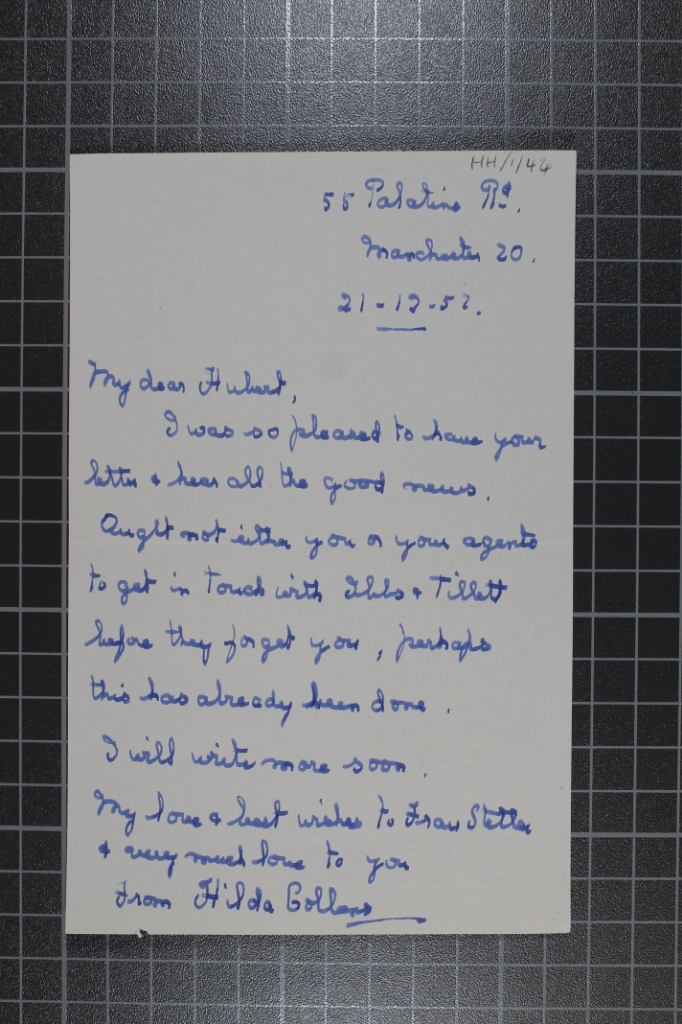 HH/1/44
55 Palatine Rd.
Manchester 20.
21-12-52.
My dear Hubert,
I was so pleased to have your
letter & hear all the good news.
Ought not either you or your agents
to get in touch with Ibbs & Tillett
before they forget you, perhaps
this has already been done.
I will write more soon.
My love & best wishes to Frau Stetter
& very much love to you
from Hilda Collens